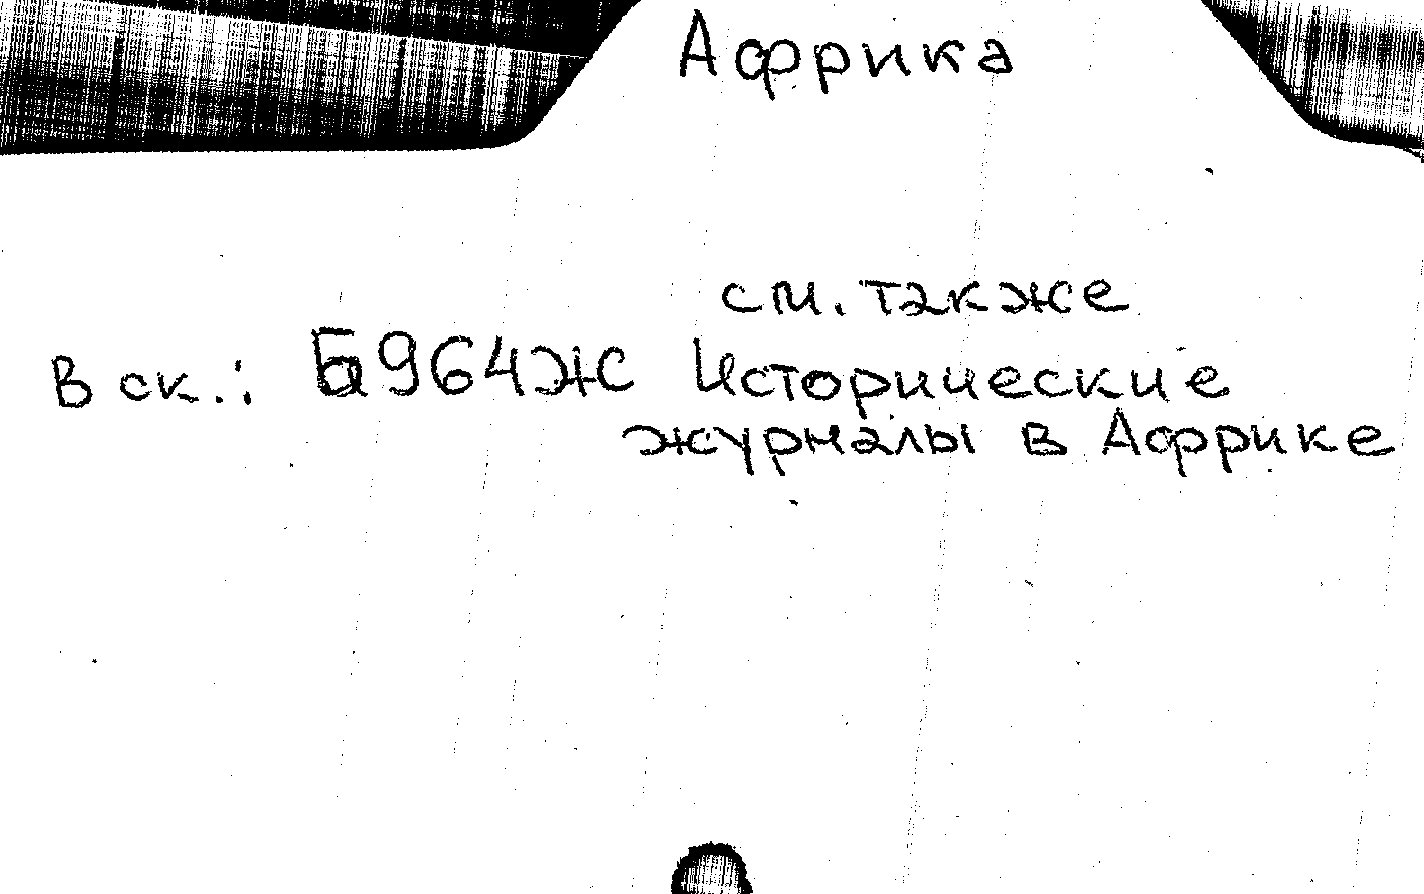 Африка
см. также
В ск.: Б964Ж Исторические
журналы в Африке